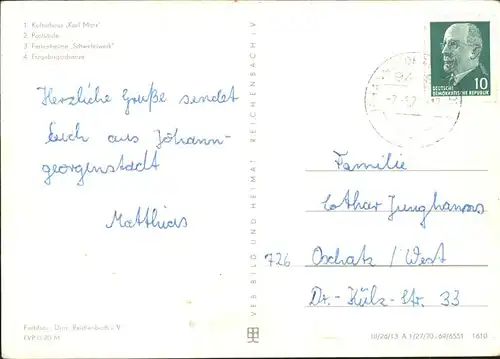 1 Kulturhaus „Karl Marx"
2 Postsäule
3 Ferienheime „Schwefelwerk"
4
Herzliche Grüße sendet
Euch aus Johann-
georgenstadt
Matthias
Farbfoto: Darr, Reichenbach i. V.
EVP 0,20 M
VEB BILD UND HEIMAT REICHENBACH i. V.
DEUTSCHE
DEMOKRATISCHE REPUBLIK
10
Familie
Lothar Junghanns
726 Oschatz / West
Dr.-Külz-Str. 33
III/26/13 A 1/27/70 - 69/6551 1610